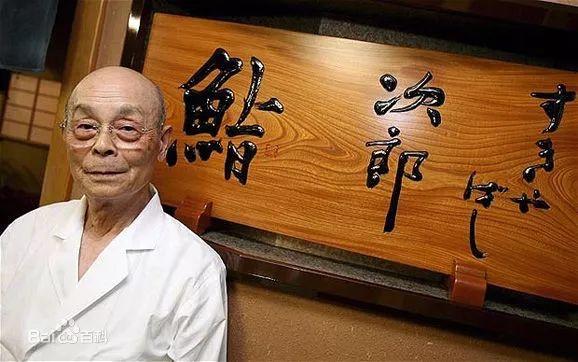 すきやばし
次郎
鮨
Bai百科